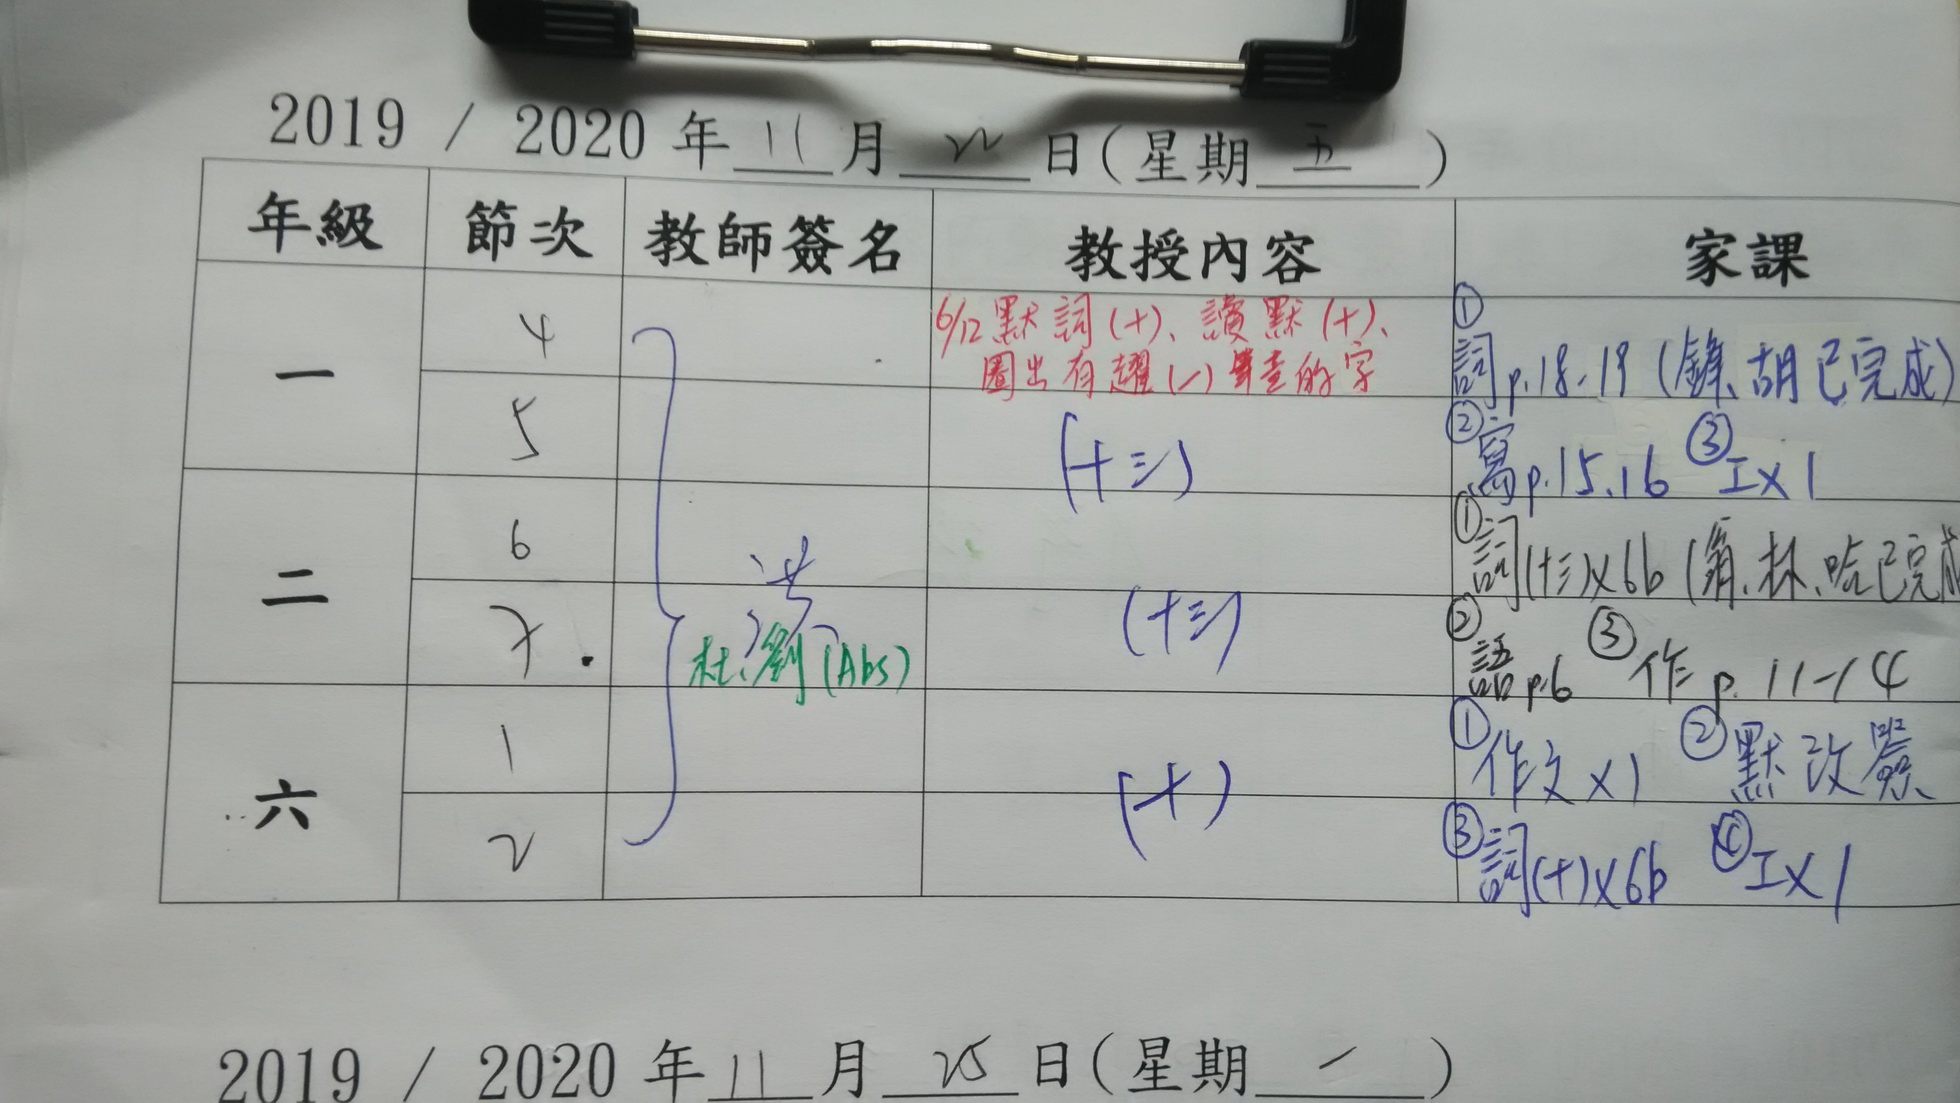 2019 / 2020 年 11 月 22 日(星期 五 )
年級 節次 教師簽名 教授內容 家課
一
4
6/12 默詞(十)、讀默(十)、
圈出有趣(一) 的字
①詞p.18-19 (鋒、胡已完成)
5
(十三)
②寫p.15.16 ③工x1
二
6
①詞(十三)x6b ( 林、哈已完成
7
杜、劉(Abs)
(十三)
②語p.6 ③作p.11-14
六
1
(十)
①作文x1 ②默改簽
2
③詞(十)x6b ④工x1
2019 / 2020 年 11 月 25 日(星期 一 )